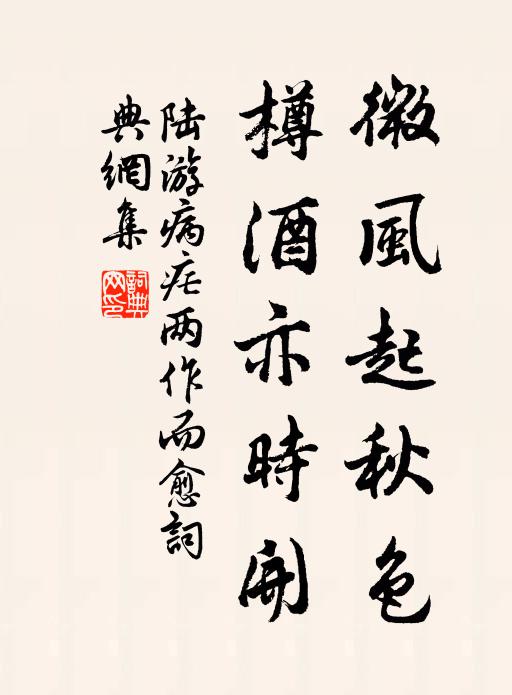 微風起秋色
樽酒亦時開
陆游病疟两作而愈詞
典網集
詞典
网印